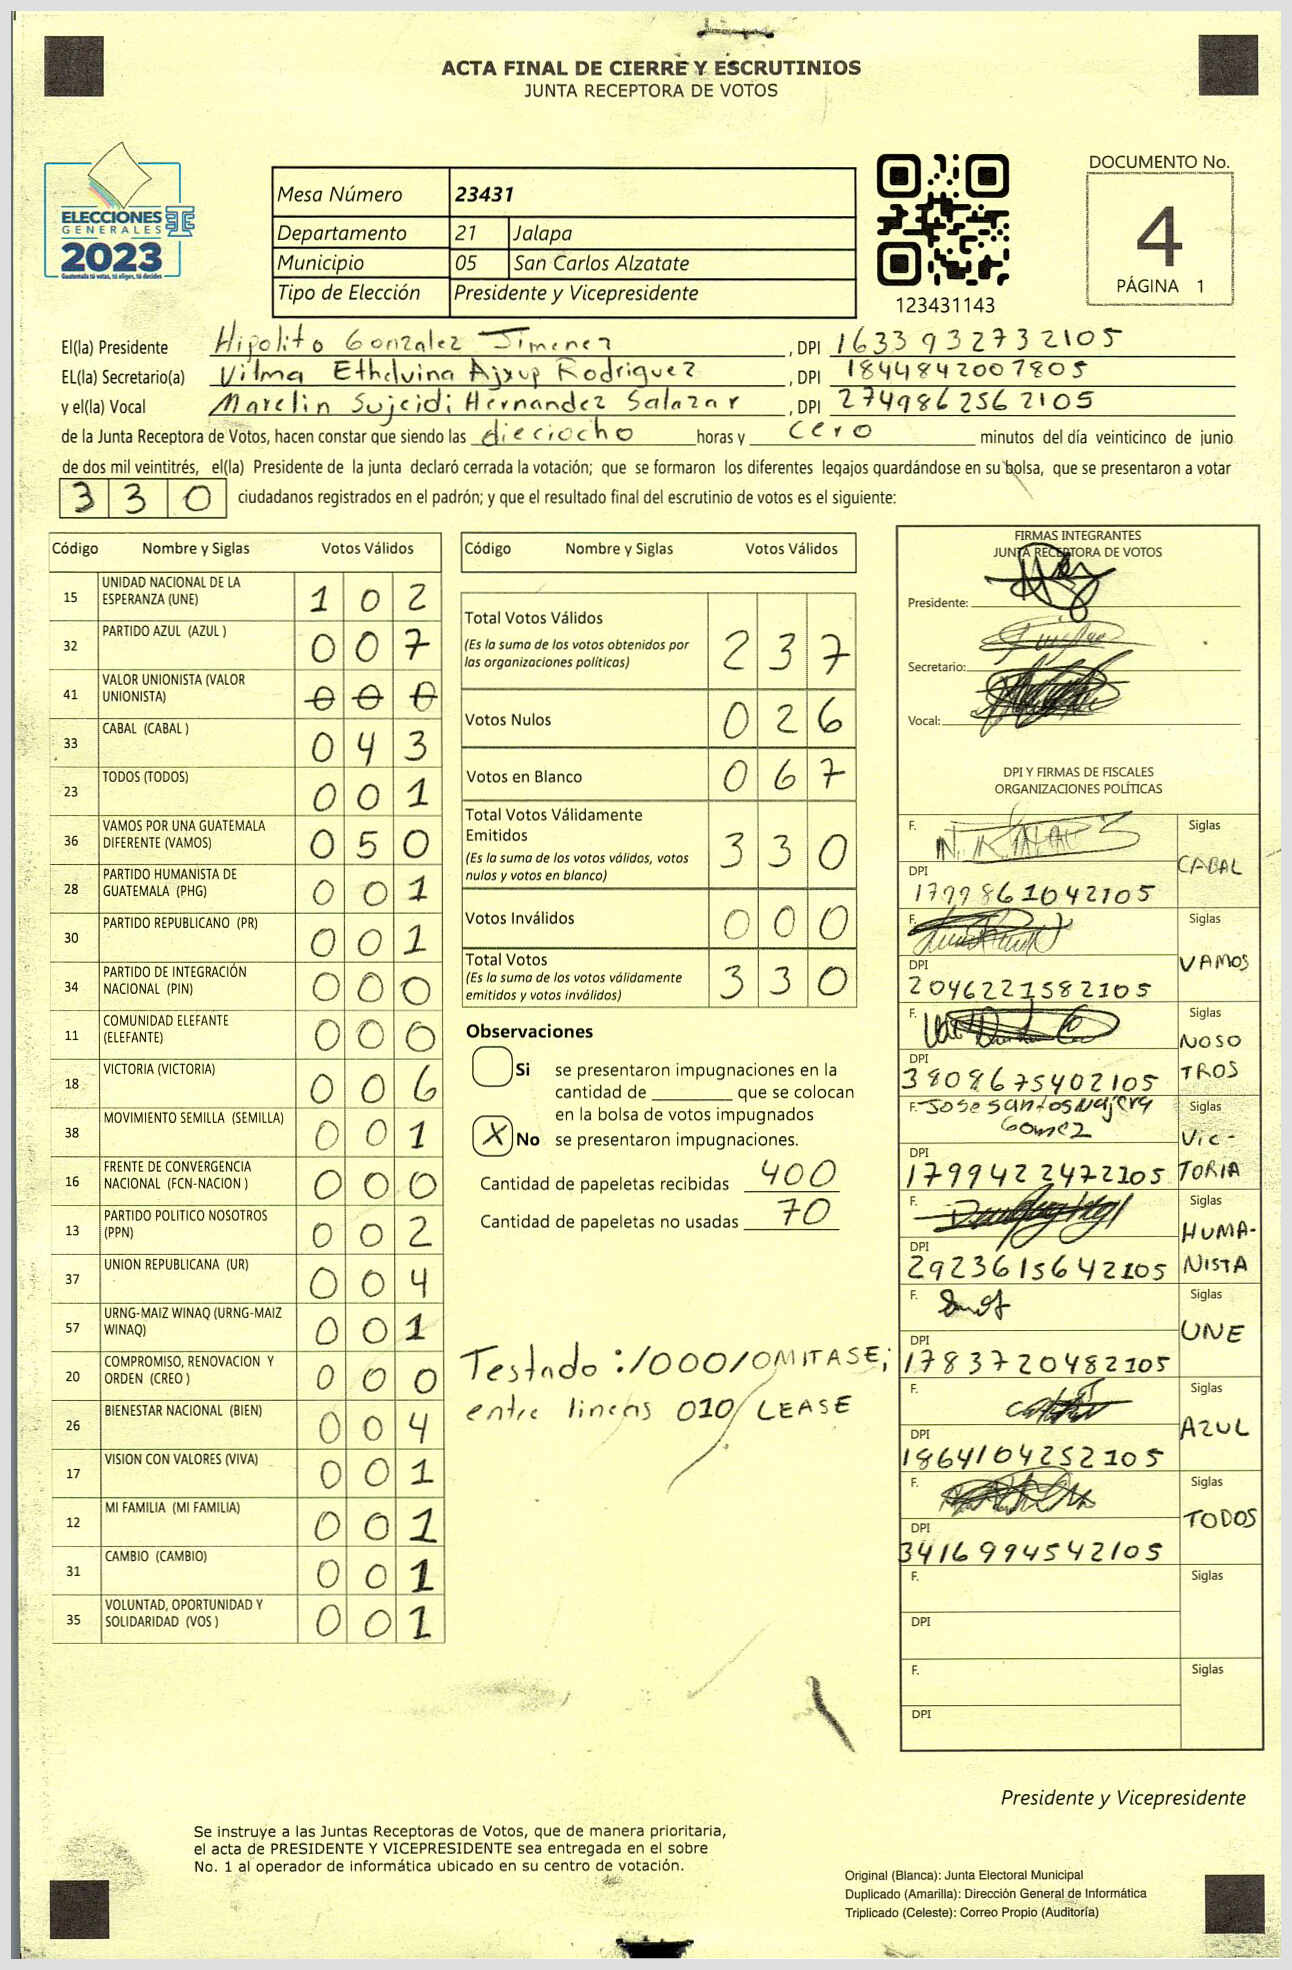 ACTA FINAL DE CIERRE Y ESCRUTINIOS
JUNTA RECEPTORA DE VOTOS
ELECCIONES
GENERALES
2023
Guatemala tú votas, tú eliges, tú decides
Mesa Número 23431
Departamento 21 Jalapa
Municipio 05 San Carlos Alzatate
Tipo de Elección Presidente y Vicepresidente
123431143
DOCUMENTO No.
4
PÁGINA 1
El(la) Presidente Hipolito Gonzalez Jimenez , DPI 1633932732105
EL(la) Secretario(a) Vilma Ethelvina Ajxup Rodriguez , DPI 1844842007805
y el(la) Vocal Marelin Sujeidi Hernandez Salazar , DPI 2749862562105
de la Junta Receptora de Votos, hacen constar que siendo las dieciocho horas y cero minutos del día veinticinco de junio
de dos mil veintitrés, el(la) Presidente de la junta declaró cerrada la votación; que se formaron los diferentes legajos guardándose en su bolsa, que se presentaron a votar
330 ciudadanos registrados en el padrón; y que el resultado final del escrutinio de votos es el siguiente:
Código Nombre y Siglas Votos Válidos
15 UNIDAD NACIONAL DE LA ESPERANZA (UNE) 102
32 PARTIDO AZUL (AZUL ) 007
41 VALOR UNIONISTA (VALOR UNIONISTA) 000
33 CABAL (CABAL ) 043
23 TODOS (TODOS) 001
36 VAMOS POR UNA GUATEMALA DIFERENTE (VAMOS) 050
28 PARTIDO HUMANISTA DE GUATEMALA (PHG) 001
30 PARTIDO REPUBLICANO (PR) 001
34 PARTIDO DE INTEGRACIÓN NACIONAL (PIN) 000
11 COMUNIDAD ELEFANTE (ELEFANTE) 000
18 VICTORIA (VICTORIA) 006
38 MOVIMIENTO SEMILLA (SEMILLA) 001
16 FRENTE DE CONVERGENCIA NACIONAL (FCN-NACION ) 000
13 PARTIDO POLITICO NOSOTROS (PPN) 002
37 UNION REPUBLICANA (UR) 004
57 URNG-MAIZ WINAQ (URNG-MAIZ WINAQ) 001
20 COMPROMISO, RENOVACION Y ORDEN (CREO ) 000
26 BIENESTAR NACIONAL (BIEN) 004
17 VISION CON VALORES (VIVA) 001
12 MI FAMILIA (MI FAMILIA) 001
31 CAMBIO (CAMBIO) 001
35 VOLUNTAD, OPORTUNIDAD Y SOLIDARIDAD (VOS ) 001
Código Nombre y Siglas Votos Válidos
Total Votos Válidos 237
(Es la suma de los votos obtenidos por
las organizaciones políticas)
Votos Nulos 026
Votos en Blanco 067
Total Votos Válidamente
Emitidos 330
(Es la suma de los votos válidos, votos
nulos y votos en blanco)
Votos Inválidos 000
Total Votos 330
(Es la suma de los votos válidamente
emitidos y votos inválidos)
Observaciones
Si se presentaron impugnaciones en la
cantidad de ________ que se colocan
en la bolsa de votos impugnados
X No se presentaron impugnaciones.
Cantidad de papeletas recibidas 400
Cantidad de papeletas no usadas 70
Testado :/000/OMITASE;
entre lineas 010/ LEASE
FIRMAS INTEGRANTES
JUNTA RECEPTORA DE VOTOS
Presidente:
Secretario:
Vocal:
DPI Y FIRMAS DE FISCALES
ORGANIZACIONES POLÍTICAS
F. Siglas
CABAL
DPI
1799861042105
F. Siglas
VAMOS
DPI
2046221582105
F. Siglas
NOSO
TROS
DPI
3808675402105
F. Jose Santos Najera Siglas
Gomez
Vic-
TORIA
DPI
1799422472105
F. Siglas
HUMA-
NISTA
DPI
2923615642105
F. Siglas
UNE
DPI
1783720482105
F. Siglas
AZUL
DPI
1864104252105
F. Siglas
TODOS
DPI
3416994542105
F. Siglas
DPI
F. Siglas
DPI
Presidente y Vicepresidente
Se instruye a las Juntas Receptoras de Votos, que de manera prioritaria,
el acta de PRESIDENTE Y VICEPRESIDENTE sea entregada en el sobre
No. 1 al operador de informática ubicado en su centro de votación.
Original (Blanca): Junta Electoral Municipal
Duplicado (Amarilla): Dirección General de Informática
Triplicado (Celeste): Correo Propio (Auditoría)